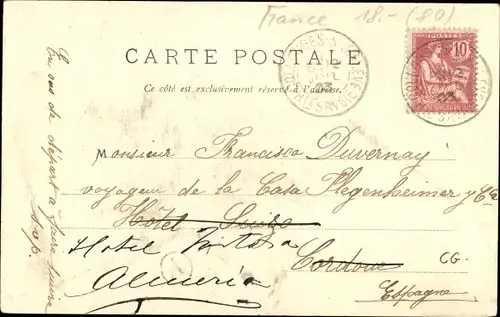 France 18.- (80)
CARTE POSTALE
Ce côté est exclusivement réservé à l'adresse.
POSTES
10
Monsieur Francisco Duvernay
voyageur de la Casa Plegenheimer y Cia
Hôtel Suizo
Hotel
Almeria
Cordoue
CG-
Espagne
En cas de départ à faire suivre
s.v.p.